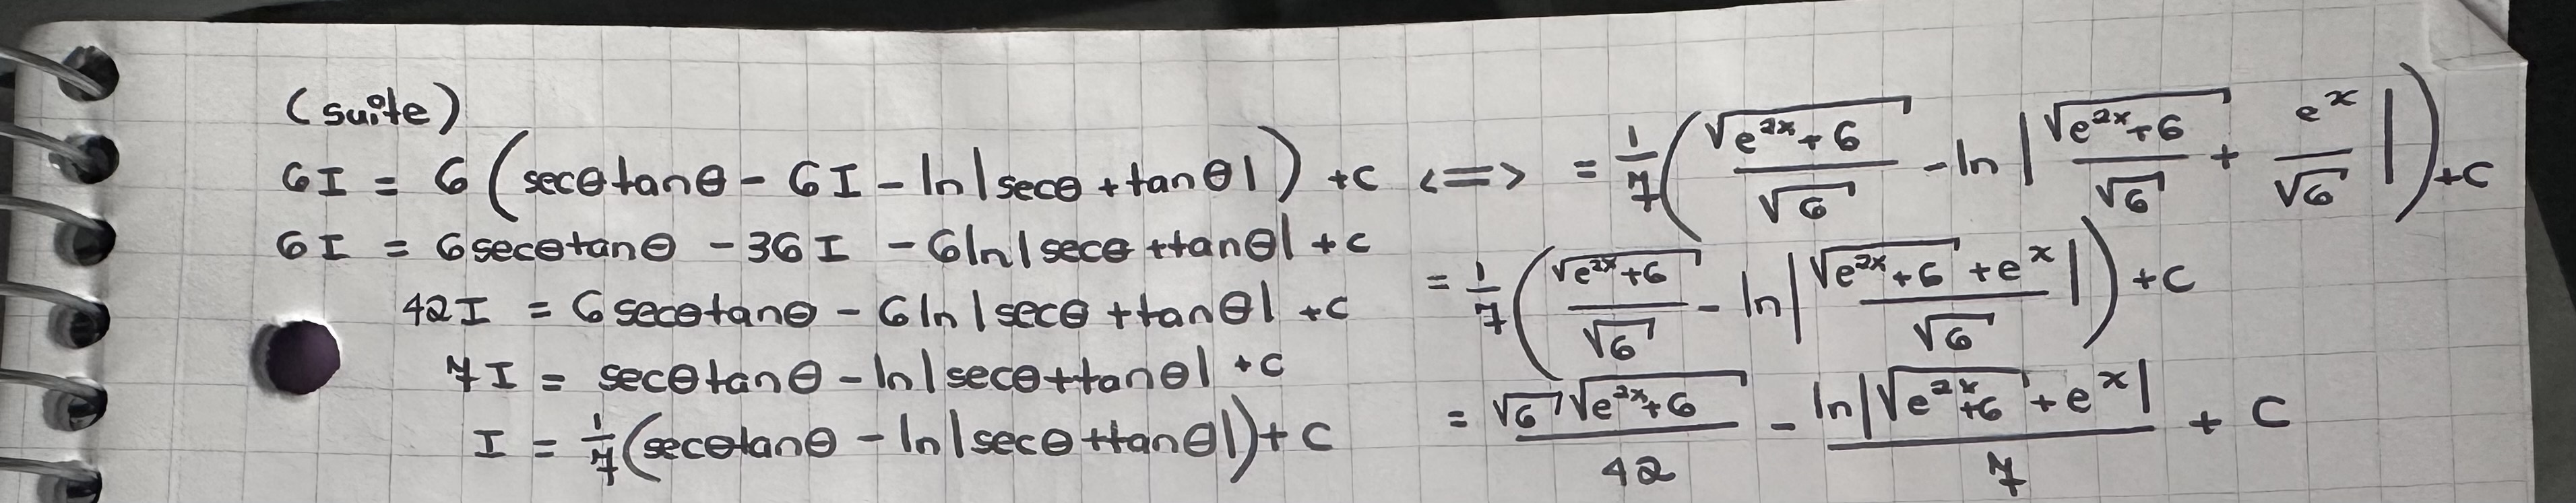 (suite)
6I = 6(secθtanθ - 6I - ln|secθ + tanθ|) + c <=>
6I = 6secθtanθ - 36I - 6ln|secθ + tanθ| + c
42I = 6secθtanθ - 6ln|secθ + tanθ| + c
7I = secθtanθ - ln|secθ + tanθ| + c
I = 1/7(secθtanθ - ln|secθ + tanθ|) + c
= 1/7(√(e^(2x) + 6)/√6 - ln|√(e^(2x) + 6)/√6 + e^x/√6|) + c
= 1/7(√(e^(2x) + 6)/√6 - ln|(√(e^(2x) + 6) + e^x)/√6|) + c
= √6√(e^(2x) + 6)/42 - ln|√(e^(2x) + 6) + e^x|/7 + c